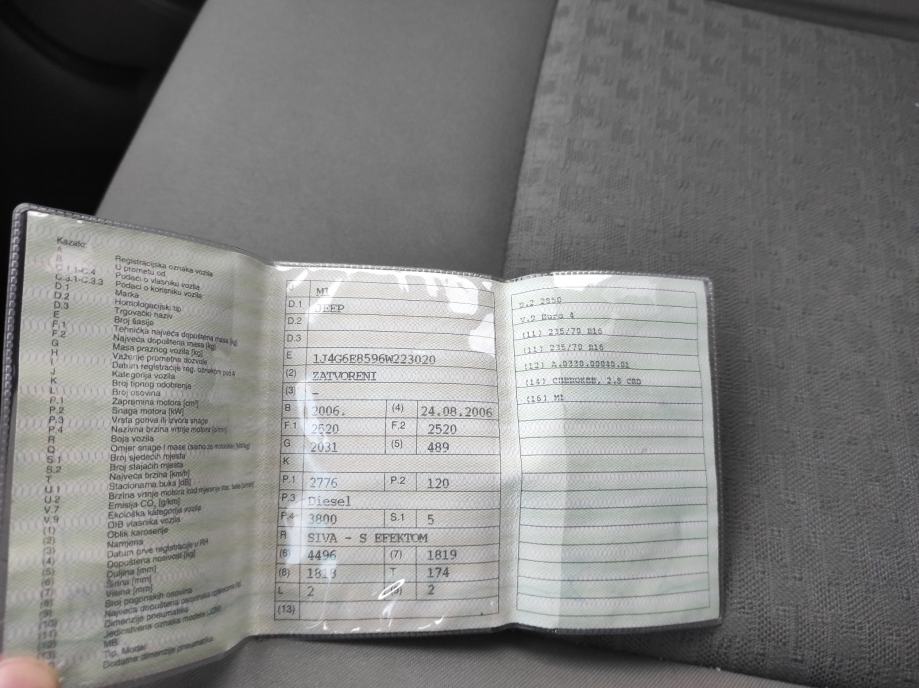 Kazalo:
A Registracijska oznaka vozila
B U prometu od
C.1.1-C.4 Podaci o vlasniku vozila
C.3.1-C.3.3 Podaci o korisniku vozila
D.1 Marka
D.2 Homologacijski tip
D.3 Trgovački naziv
E Broj šasije
F.1 Tehnička najveća dopuštena masa [kg]
F.2 Najveća dopuštena masa [kg]
G Masa praznog vozila [kg]
H Važenje prometne dozvole
I Datum registracije
J Kategorija vozila
K Broj tipnog odobrenja
L Broj osovina
P.1 Zapremina motora [cm³]
P.2 Snaga motora [kW]
P.3 Vrsta goriva ili izvora snage
P.4 Nazivna brzina vrtnje motora
R Boja vozila
Q Omjer snage i mase
S.1 Broj sjedećih mjesta
S.2 Broj stajaćih mjesta
T Najveća brzina [km/h]
U.1 Stacionarna buka [dB]
U.2 Brzina vrtnje motora
V.7 Emisija CO₂ [g/km]
V.9 Ekološka kategorija vozila
(1) OIB vlasnika vozila
(2) Oblik karoserije
(3) Namjena
(4) Datum prve registracije u RH
(5) Dopuštena nosivost [kg]
(6) Duljina [mm]
(7) Širina [mm]
(8) Visina [mm]
Broj pogonskih osovina
(10) Najveća dopuštena
(11) Dimenzije pneumatika
(12) Jedinstvena oznaka modela
MB
Tip, Model
Dodatne dimenzije pneumatika
J M1
D.1 JEEP
D.2
D.3
E 1J4G6E8596W223020
(2) ZATVORENI
(3) –
B 2006. (4) 24.08.2006
F.1 2520 F.2 2520
G 2031 (5) 489
K
P.1 2776 P.2 120
P.3 Diesel
P.4 3800 S.1 5
R SIVA - S EFEKTOM
(6) 4496 (7) 1819
(8) T 174
L 2 (9) 2
(13)
V.9 Euro 4
(11) 235/70 R16
(11) 235/70 R16
(14) CHEROKEE, 2.8 CRD
(16) M1